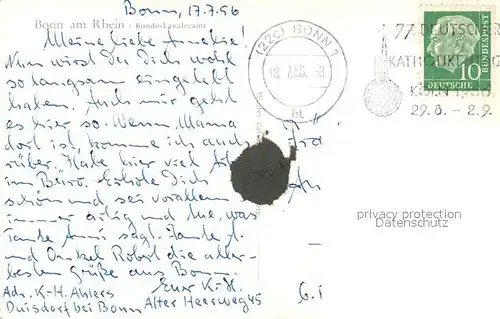 Bonn, 17.7.56
Bonn am Rhein · Bundeskanzleramt
Meine liebe
Nun wirst Du Dich wohl
so langsam eingelebt
haben. Auch mir geht
es hier so. Wenn Mama
dort ist, komme ich auch
rüber. Habe hier viel
im Büro. Erhole Dich
schön und sei vor allem
immer artig und tue, was
Tante Anni sagt. Tante A.
und Onkel Robert die aller-
besten Grüße aus Bonn.
Euer K-H.
Adr. K-H. Ahlers
Duisdorf bei Bonn
Alter Heerweg 45
(22c) BONN 1
18.7.56.-8
bt
77. DEUTSCHER
KATHOLIKENTAG
KÖLN 1956
29.8. - 2.9.
10
DEUTSCHE
BUNDESPOST
Frä
An
privacy protection
Datenschutz